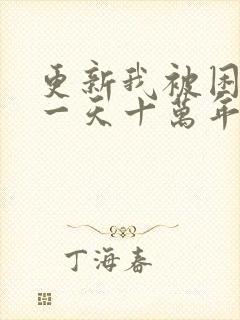 更新我被困
一天十萬年
丁海春